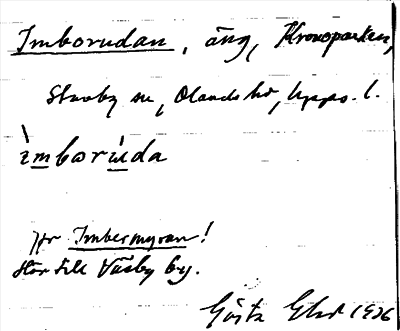 Imborudan, äng, Kronoparken,
Skuby sn, Olands hd, Upps. l.
ìmborùda
Jfr Imbermyran!
Hör till Väsby by.
Gösta 1926